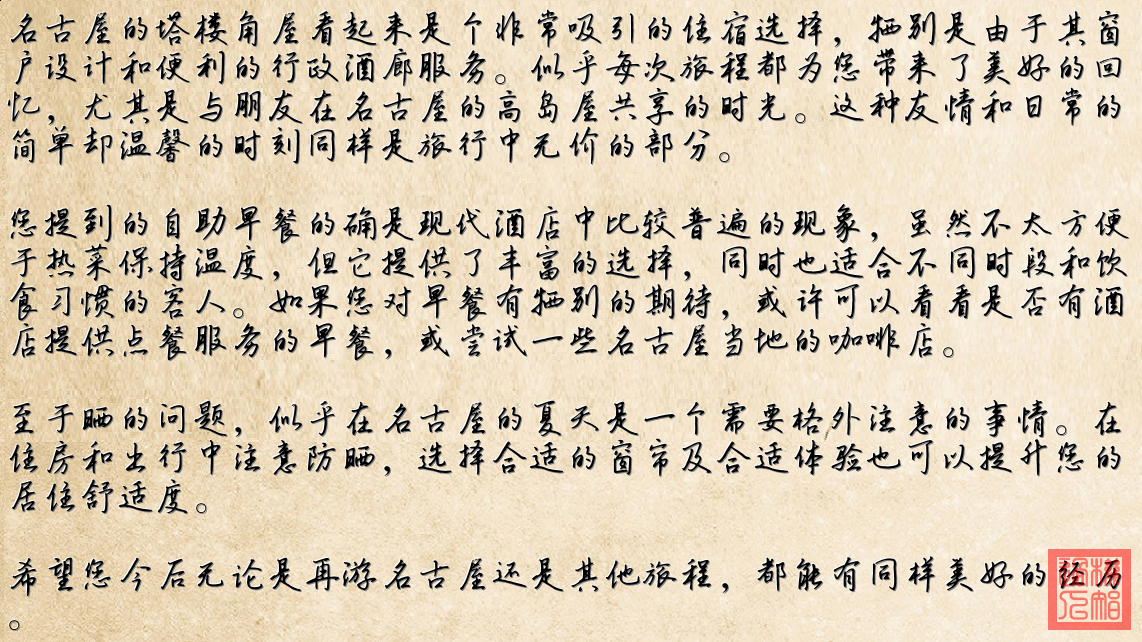 名古屋的塔楼角屋看起来是个非常吸引的住宿选择，牺别是由于其窗
户设计和便利的行政酒廊服务。似乎每次旅程都为您带来了美好的回
忆，尤其是与朋友在名古屋的高岛屋共享的时光。这种友情和日常的
简单却温馨的时刻同样是旅行中无价的部分。
您提到的自助早餐的确是现代酒店中比较普遍的现象，虽然不太方便
于热菜保持温度，但它提供了丰富的选择，同时也适合不同时段和饮
食习惯的客人。如果您对早餐有牺别的期待，或许可以看看是否有酒
店提供点餐服务的早餐，或尝试一些名古屋当地的咖啡店。
至于晒的问题，似乎在名古屋的夏天是一个需要格外注意的事情。在
住房和出行中注意防晒，选择合适的窗帘及合适体验也可以提升您的
居住舒适度。
希望您今后无论是再游名古屋还是其他旅程，都能有同样美好的经历
。